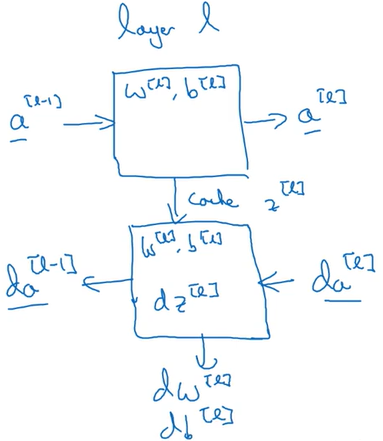 layer l
a^[l-1] w^[l], b^[l] a^[l]
cache z^[l]
w^[l], b^[l]
da^[l-1] dz^[l] da^[l]
dw^[l]
db^[l]